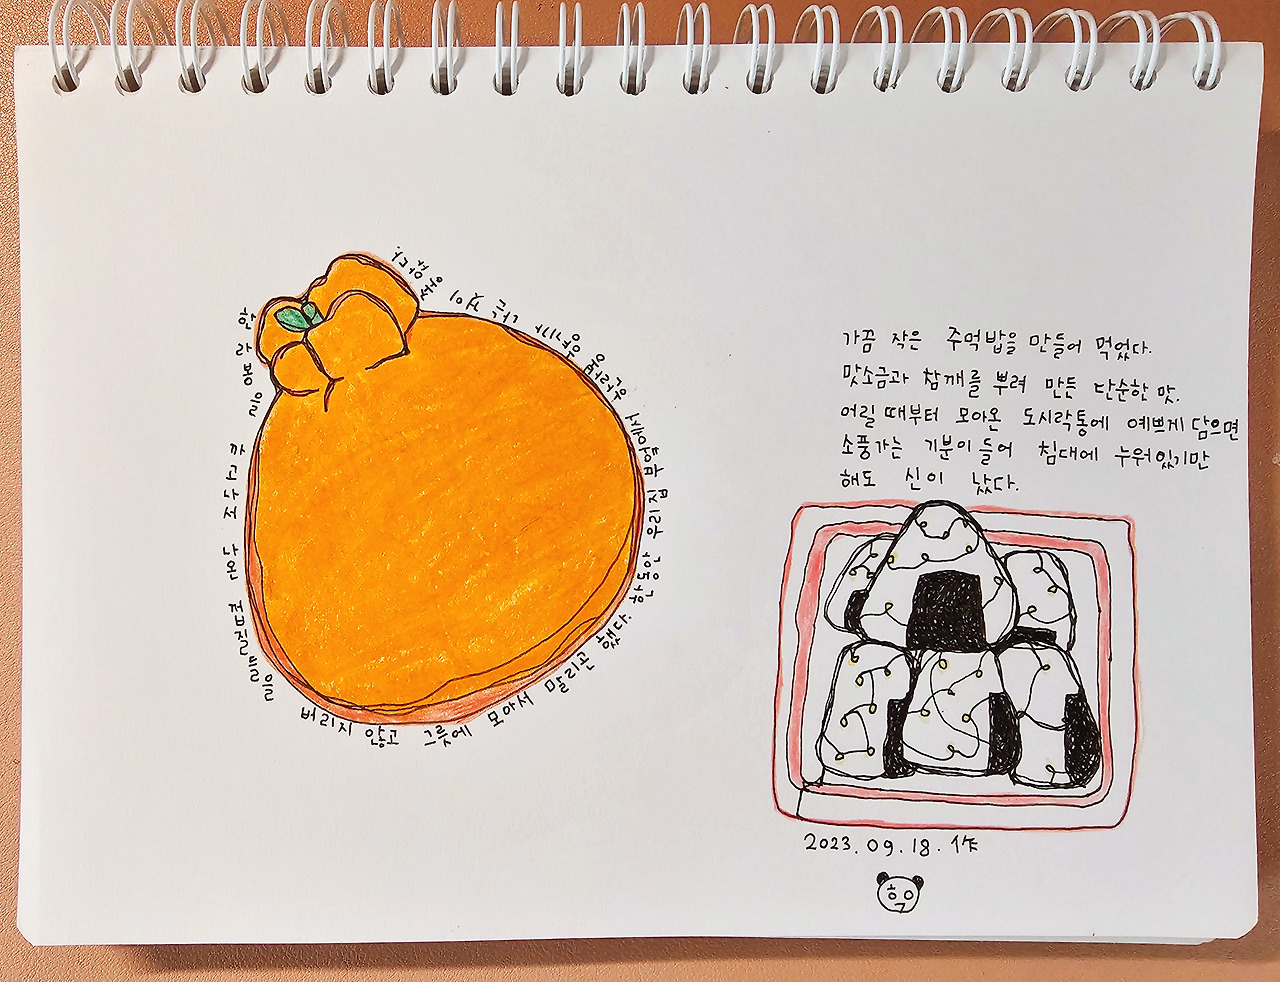 한라봉을 까고나서 나온 껍질들을
버리지 않고 그릇에 모아서 말리곤 했다.
가끔 작은 주먹밥을 만들어 먹었다.
맛소금과 참깨를 뿌려 만든 단순한 맛.
어릴 때부터 모아온 도시락통에 예쁘게 담으면
소풍가는 기분이 들어 침대에 누워있기만
해도 신이 났다.
2023.09.18.作